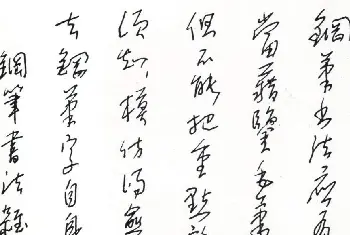 鋼筆书法應
當藉鑒毛筆
但不能把重點
須知,模仿得
去鋼筆字自身
鋼筆書法雖